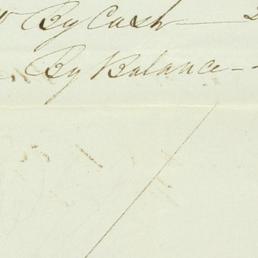 By Cash
By Balance